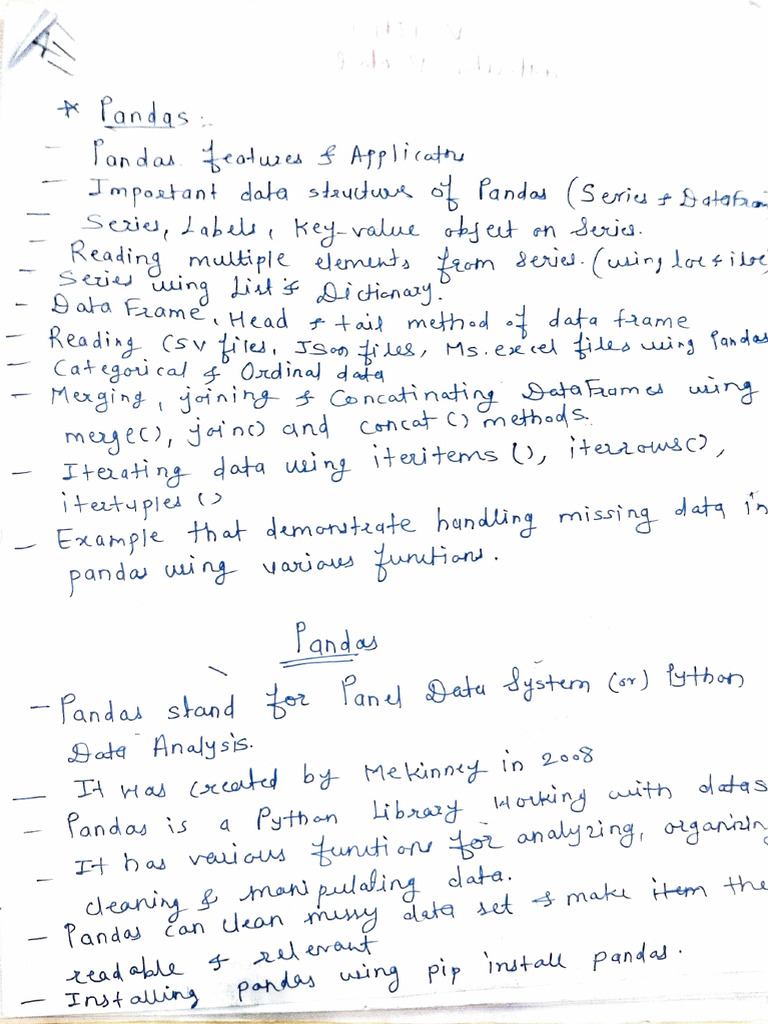 * Pandas :-
- Pandas features & Applicatns
- Important data structure of Pandas (Series & Datafram
- Series, Labels, Key-value object on Series.
- Reading multiple elements from series. (using loc & iloc)
- Series using List & Dictionary.
- Data Frame, Head & tail method of data frame
- Reading CSV files, JSon files, Ms. excel files using Pandas
- Categorical & Ordinal data
- Merging, joining & Concatinating DataFrames using
merge(), join() and concat () methods.
- Iterating data using iteritems (), iterrows(),
itertuples ()
- Example that demonstrate handling missing data in
pandas using various functions.
Pandas
- Pandas stand for Panel Data System (or) Python
Data Analysis.
- It was created by Mekinney in 2008
- Pandas is a Python Library working with datas
- It has various functions for analyzing, organizing
cleaning & manipulating data.
- Pandas can clean messy data set & make item the
readable & relevant
- Installing pandas using pip install pandas.